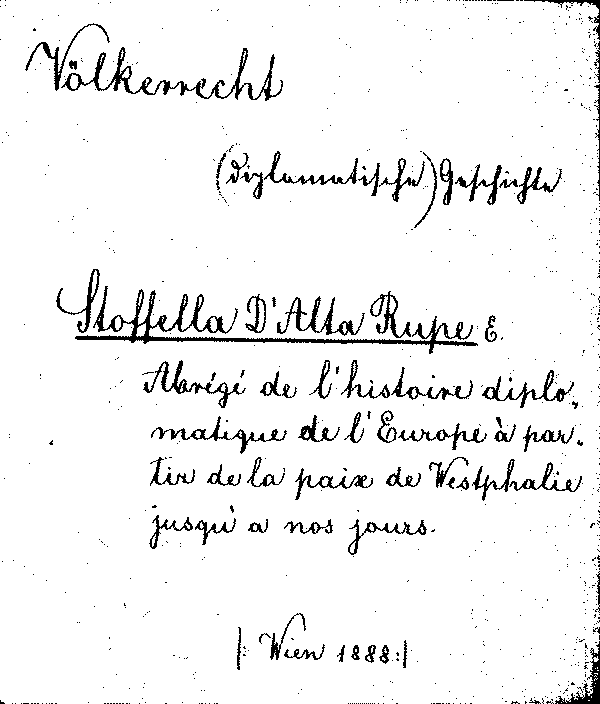 Völkerrecht
(diplomatische) Geschichte
Stoffella D'Alta Rupe E.
Abrégé de l'histoire diplo,
matique de l'Europe à par.
tir de la paix de Westphalie
jusqu'à nos jours.
|: Wien 1888:|